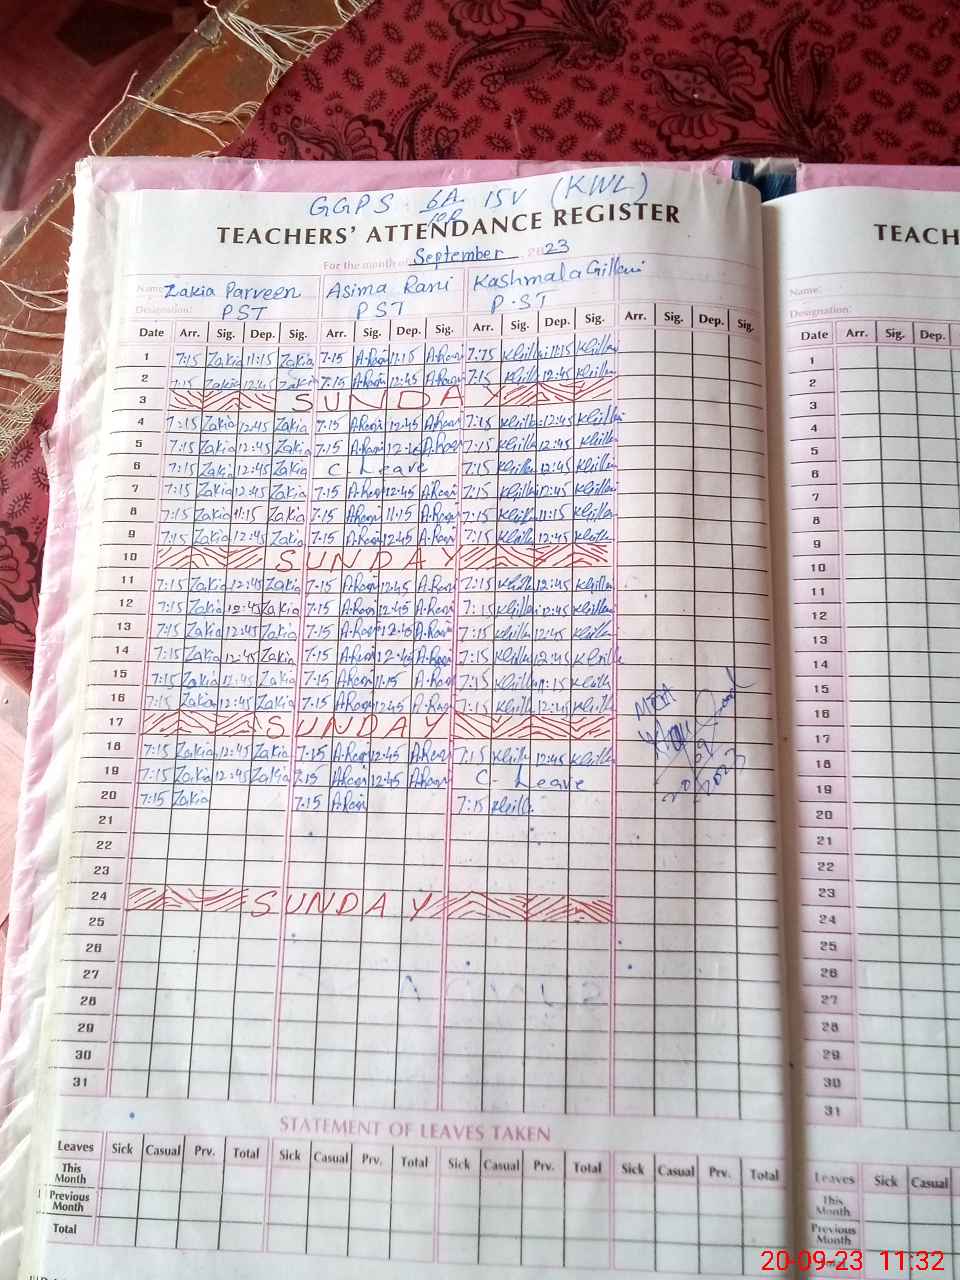 GGPS 6A 15V (KWL)
10R
TEACHERS' ATTENDANCE REGISTER
For the month of September 2023
Name: Zakia Parveen Asima Rani Kashmala Gillani
Designation: PST PST P.ST
Date Arr. Sig. Dep. Sig. Arr. Sig. Dep. Sig. Arr. Sig. Dep. Sig. Arr. Sig. Dep. Sig.
1 7:15 Zakia 11:15 Zakia 7-15 A.Rani 11.15 A.Rani 7:15 KGillani 11:15 KGillani
2 7:15 Zakia 12:45 Zakia 7-15 A.Rani 12:45 A.Rani 7:15 KGillani 12:45 KGillani
3 SUNDAY
4 7:15 Zakia 12:45 Zakia 7-15 A.Rani 12:45 A.Rani 7:15 KGillani 12:45 KGillani
5 7:15 Zakia 12:45 Zakia 7-15 A.Rani 12-45 A.Rani 7:15 KGillani 12:45 KGillani
6 7:15 Zakia 12:45 Zakia C-Leave 7:15 KGillani 12:45 KGillani
7 7:15 Zakia 12:45 Zakia 7-15 A.Rani 12:45 A.Rani 7:15 KGillani 12:45 KGillani
8 7:15 Zakia 11:15 Zakia 7-15 A.Rani 11.15 A.Rani 7:15 KGillani 11:15 KGillani
9 7:15 Zakia 12:45 Zakia 7-15 A.Rani 12:45 A.Rani 7:15 KGillani 12:45 KGillani
10 SUNDAY
11 7:15 Zakia 12:45 Zakia 7-15 A.Rani 12:45 A.Rani 7:15 KGillani 12:45 KGillani
12 7:15 Zakia 12:45 Zakia 7-15 A.Rani 12:45 A.Rani 7:15 KGillani 12:45 KGillani
13 7:15 Zakia 12:45 Zakia 7-15 A.Rani 12-45 A.Rani 7:15 KGillani 12:45 KGillani
14 7:15 Zakia 12:45 Zakia 7-15 A.Rani 12-45 A.Rani 7:15 KGillani 12:45 KGillani
15 7:15 Zakia 11:15 Zakia 7-15 A.Rani 11-15 A.Rani 7:15 KGillani 11:15 KGillani
16 7:15 Zakia 12:45 Zakia 7-15 A.Rani 12:45 A.Rani 7:15 KGillani 12:45 KGillani
17 SUNDAY
18 7:15 Zakia 12:45 Zakia 7-15 A.Rani 12:45 A.Rani 7:15 KGillani 12:45 KGillani
19 7:15 Zakia 12:45 Zakia 7.15 A.Rani 12:45 A.Rani C-Leave
20 7:15 Zakia 7.15 A.Rani 7:15 KGillani
21
22
23
24 SUNDAY
25
26
27
28
29
30
31
MEA
20/09/2023
STATEMENT OF LEAVES TAKEN
Leaves Sick Casual Prv. Total Sick Casual Prv. Total Sick Casual Prv. Total Sick Casual Prv. Total
This Month
Previous Month
Total
TEACH
Name:
Designation:
Date Arr. Sig. Dep.
1
2
3
4
5
6
7
8
9
10
11
12
13
14
15
16
17
18
19
20
21
22
23
24
25
26
27
28
29
30
31
Leaves Sick Casual
This Month
Previous Month
20-09-23 11:32